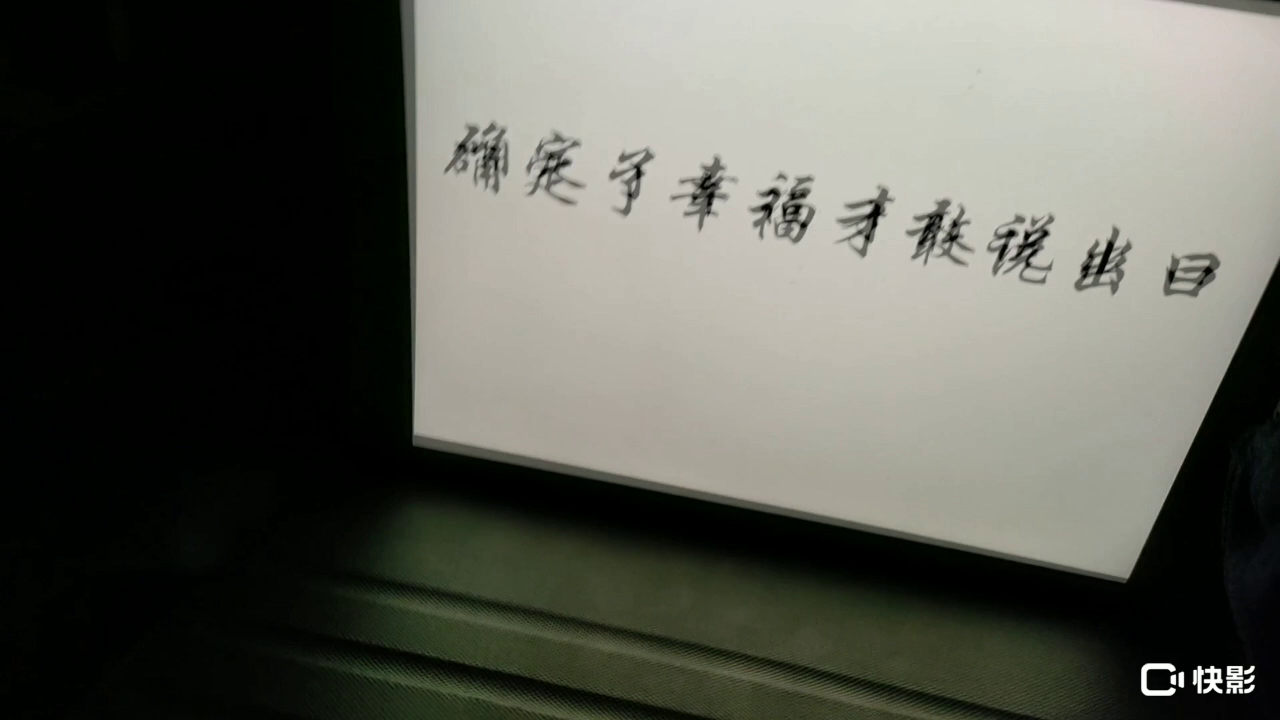 确定了幸福才敢说出口
快影